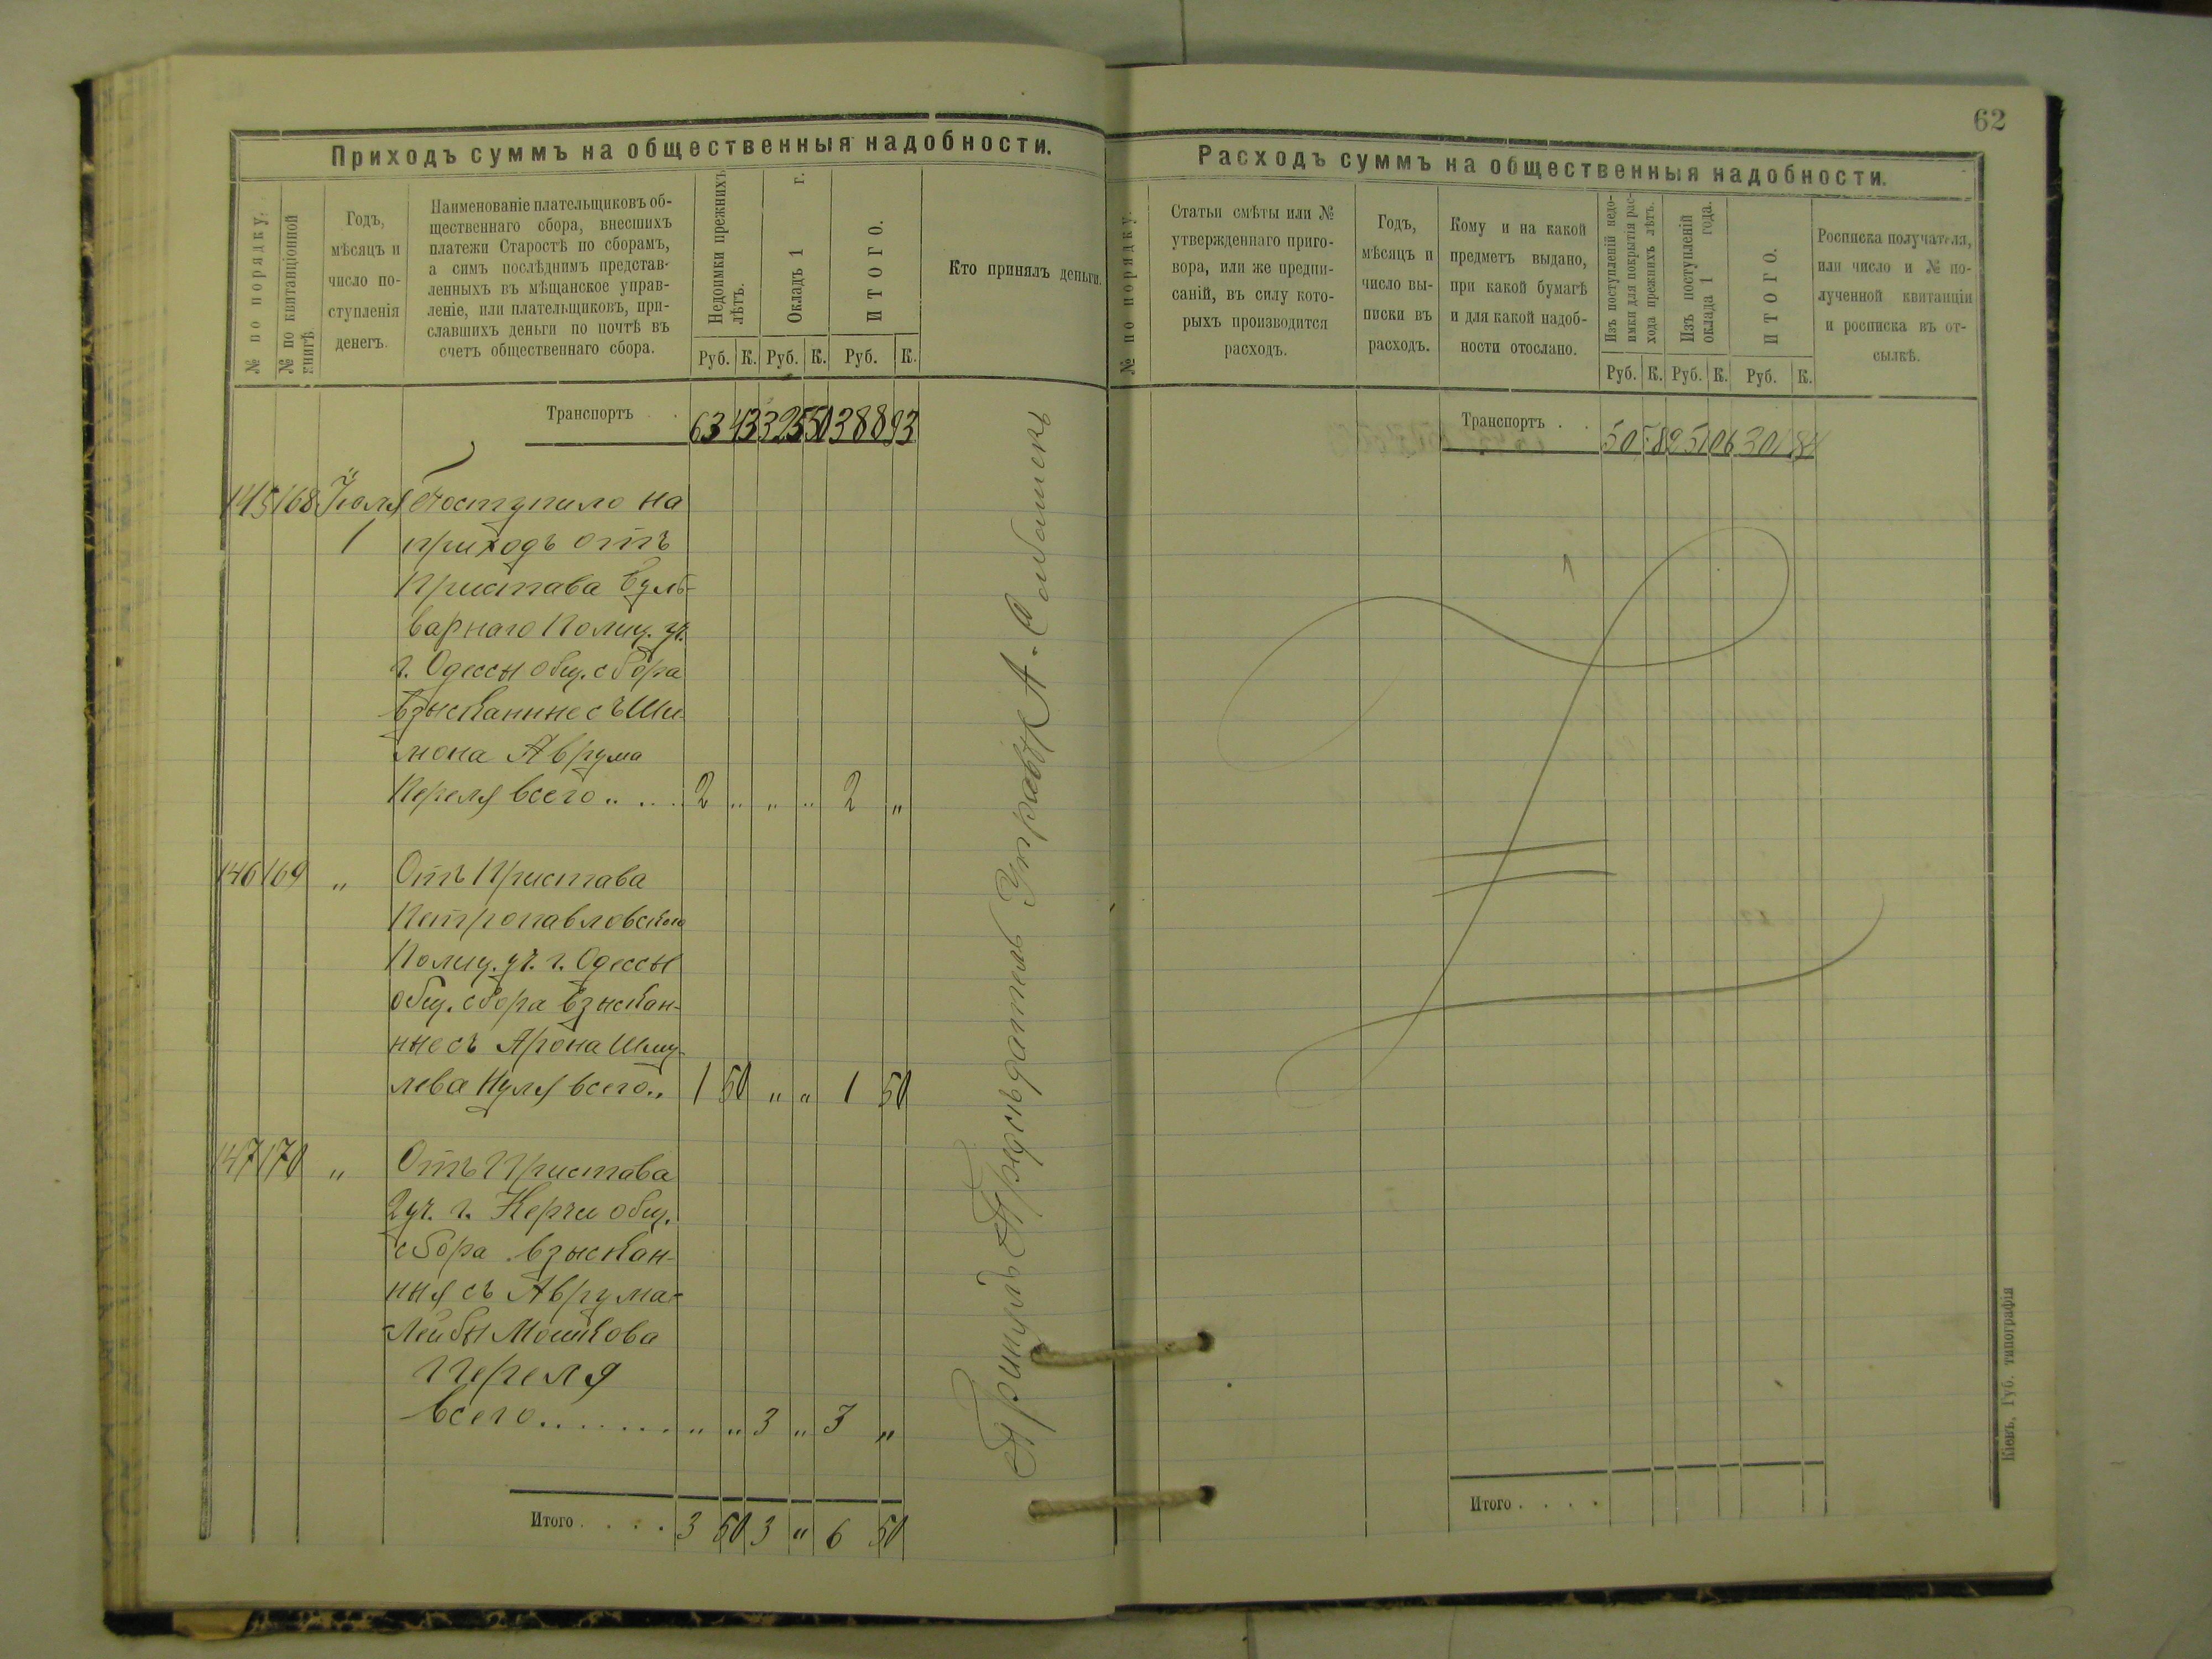 62
Приходъ суммъ на общественныя надобности.
№ по порядку.
№ по квитанціонной книгѣ
Годъ,
мѣсяцъ и
число по-
ступленія
денегъ.
Наименованіе плательщиковъ об-
щественнаго сбора, внесшихъ
платежи Старостѣ по сборамъ,
а симъ послѣднимъ представ-
ленныхъ въ мѣщанское управ-
леніе, или плательщиковъ, при-
славшихъ деньги по почтѣ въ
счетъ общественнаго сбора.
Недоимки прежнихъ
лѣтъ.
Окладъ 1 г.
ИТОГО.
Руб. К. Руб. К. Руб. К.
Кто принялъ деньги.
Транспортъ . . 63 43 325 50 388 93
145 168 Іюля Поступило на
1 приходъ отъ
Пристава Буль-
варнаго Полиц. уч.
г. Одессы общ. сбора
взысканные съ Ши-
мона Аврума
Переля всего .. ... 2 " " " 2 "
146 169 " Отъ Пристава
Петропавловскаго
Полиц. уч. г. Одессы
общ. сбора взыскан-
ные съ Арона Шму-
лева всего .. 1 50 " " 1 50
147 170 " Отъ Пристава
2 уч. г. Керчи общ.
сбора взыскан-
ныя съ Аврума-
Лейбы Мошкова
Переля
всего . . . . . . . " " 3 " 3 "
Итого . . . . 3 50 3 " 6 50
Принялъ Предсѣдатель Управы А.
Расходъ суммъ на общественныя надобности.
№ по порядку.
Статьи смѣты или №
утвержденнаго приго-
вора, или же предпи-
саній, въ силу кото-
рыхъ производится
расходъ.
Годъ,
мѣсяцъ и
число вы-
писки въ
расходъ.
Кому и на какой
предметъ выдано,
при какой бумагѣ
и для какой надоб-
ности отослано.
Изъ поступленій недо-
имки для покрытія рас-
хода прежнихъ лѣтъ.
Изъ поступленій
оклада 1 года.
ИТОГО.
Руб. К. Руб. К. Руб. К.
Росписка получателя,
или число и № по-
лученной квитанціи
и росписка въ от-
сылкѣ.
Транспортъ . . 50 78 251 06 301 84
Итого . . . .
Кіевъ, Губ. типографія